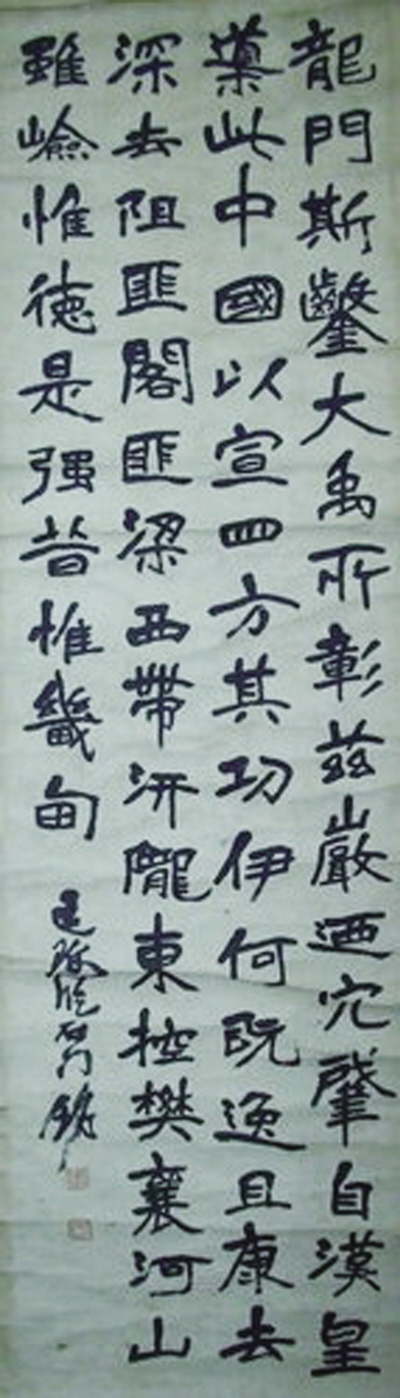 龍門斯鑿大禹所彰茲巖迺穴肇自漢皇
藁此中國以宣四方其功伊何既逸且康去
深去阻匪閣匪梁西帶汧隴東控樊襄河山
雖嶮惟德是强昔惟畿甸
臨石門銘